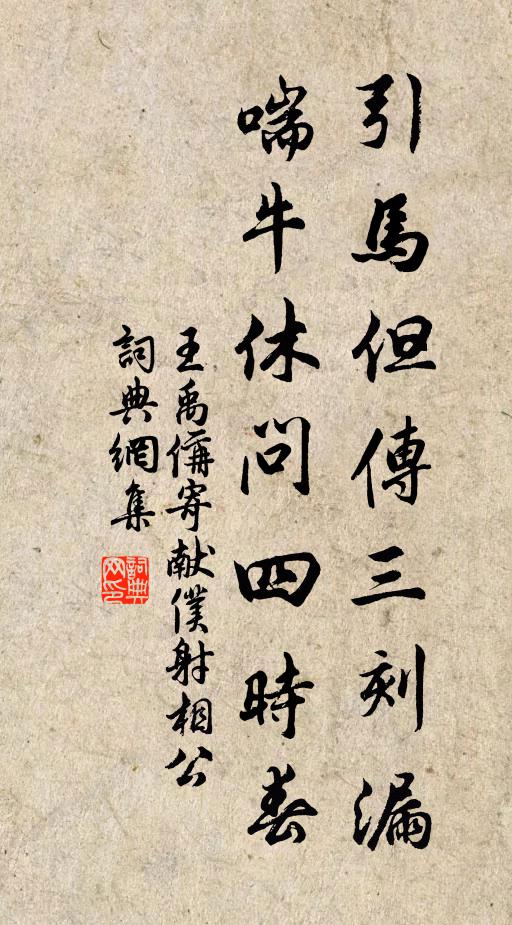 引馬但傳三刻漏
喘牛休問四時春
王禹偁寄献僕射相公
詞典網集
詞典网印